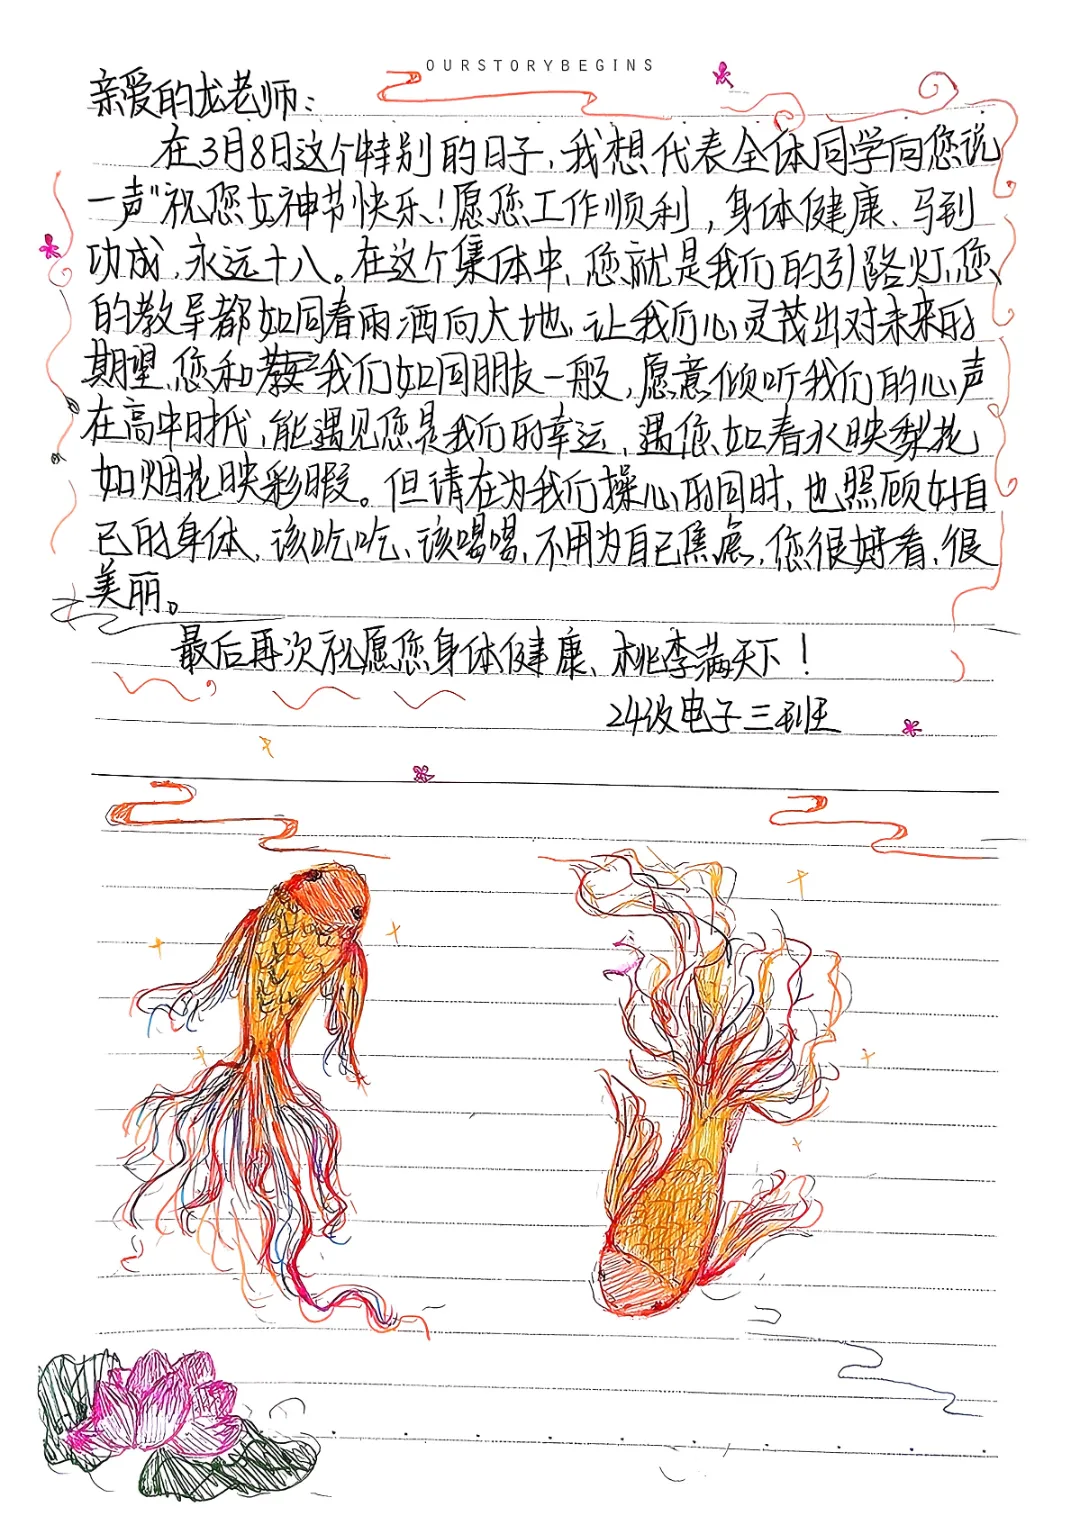 OURSTORYBEGINS
亲爱的龙老师：
在3月8日这个特别的日子，我想代表全体同学向您说
一声“祝您女神节快乐！愿您工作顺利，身体健康、马到
功成，永远十八。在这个集体中，您就是我们的引路灯，您
的教导都如同春雨洒向大地，让我们心灵茂出对未来的
期望，您和我们如同朋友一般，愿意倾听我们的心声
在高中时代，能遇见您是我们的幸运，遇您如春水映梨花
如烟花映彩暇。但请在为我们操心的同时，也照顾好自
己的身体，该吃吃，该喝喝，不用为自己焦虑，您很好看，很
美丽。
最后再次祝愿您身体健康、桃李满天下！
24级电子三班